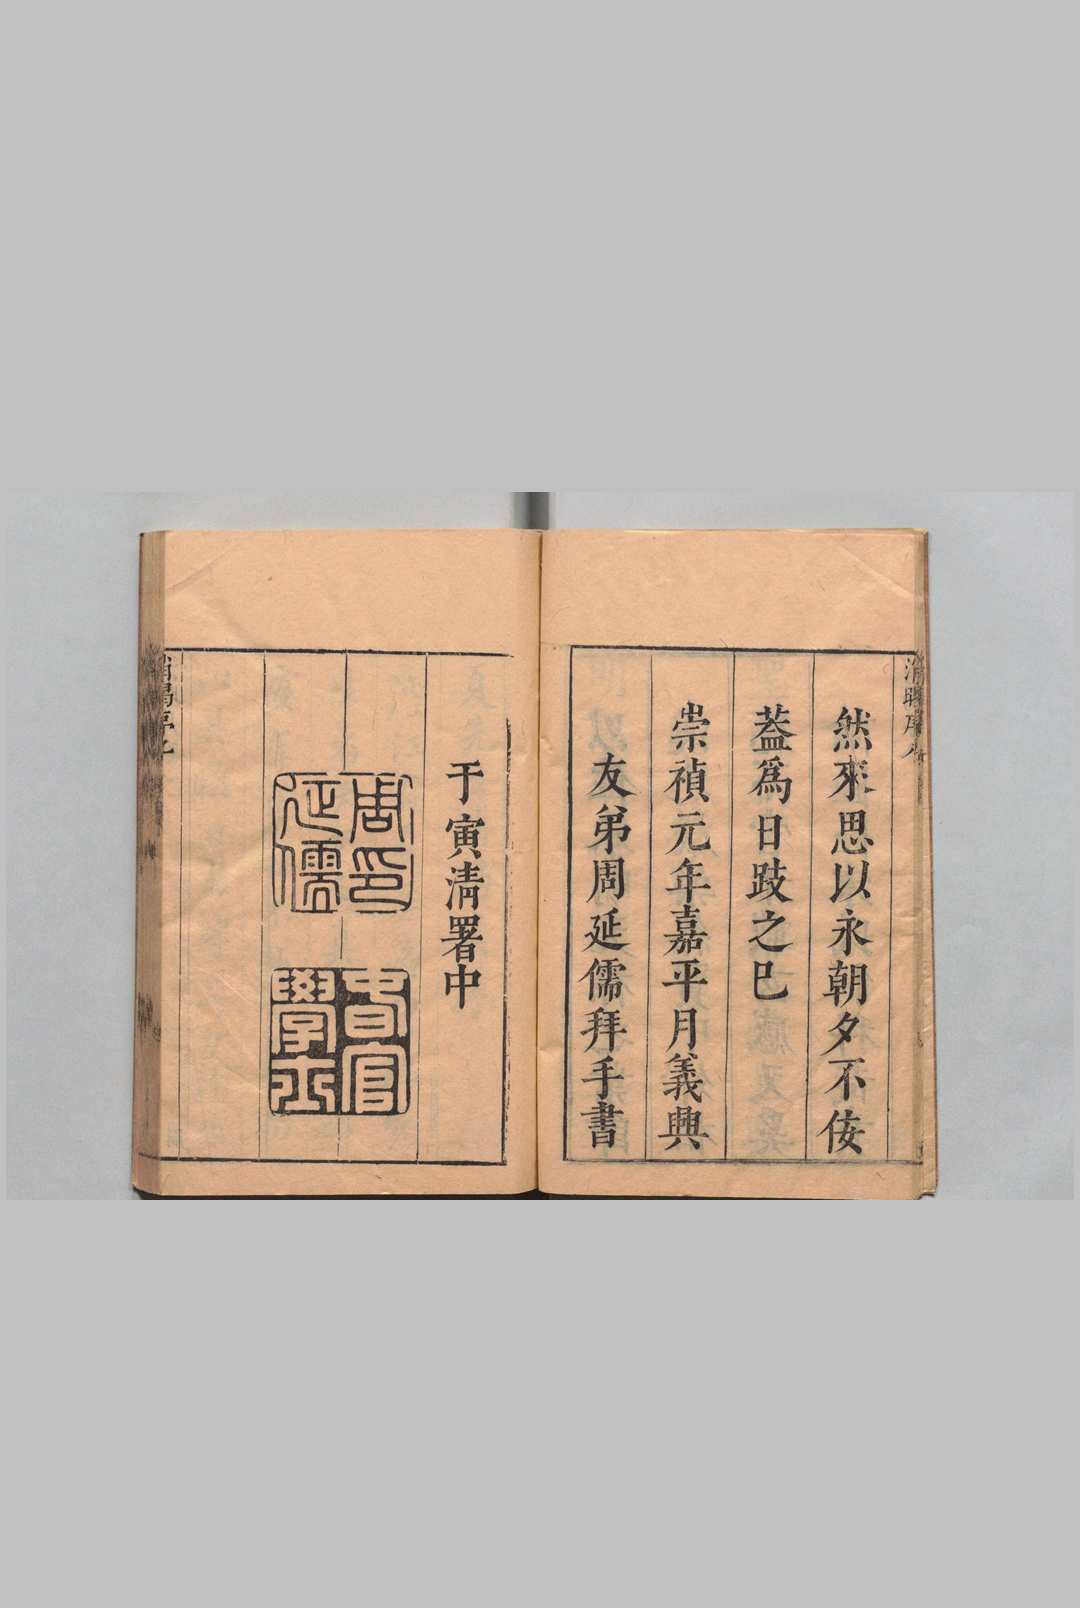 然來思以永朝夕不佞
葢爲日跂之巳
崇禎元年嘉平月義興
友弟周延儒拜手書
于寅清署中
周印
延儒
春官
學士